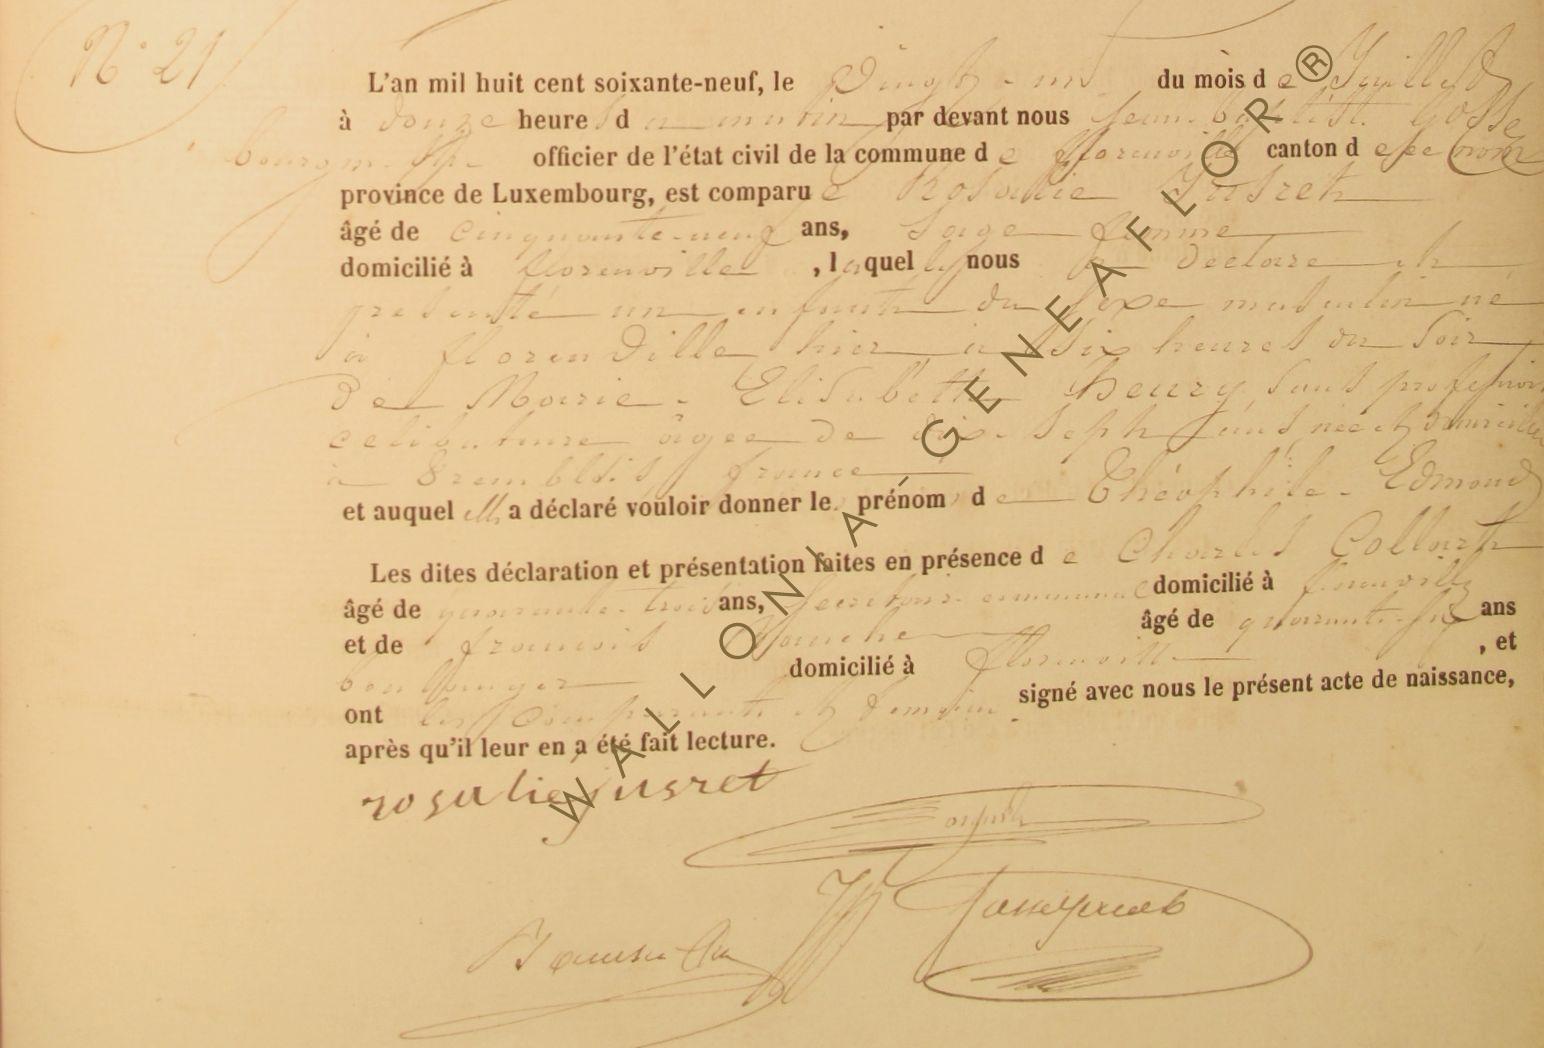 N° 21
L'an mil huit cent soixante-neuf, le vingt-un du mois de Juillet
à douze heures du matin par devant nous Jean-Baptiste Gosse
bourgmestre officier de l'état civil de la commune de florenville canton de
province de Luxembourg, est comparue Rosalie Jusret
âgé de cinquante-neuf ans, Sage femme
domicilié à florenville, laquelle nous a déclaré et
présenté un enfant du sexe masculin né
à florenville hier à six heures du soir
de Marie-Elisabeth henry, sans profession
célibataire âgée de dix-sept ans née et domiciliée
à france
et auquel elle a déclaré vouloir donner le prénom de Théophile-Edmond
Les dites déclaration et présentation faites en présence de Charles Collart
âgé de quarante-trois ans, Secrétaire communal domicilié à florenville
et de françois âgé de quarante-six ans
boulanger domicilié à florenville, et
ont les comparante et témoins signé avec nous le présent acte de naissance,
après qu'il leur en a été fait lecture.
rosalie jusret
WALLONIA GENEAFLOR®